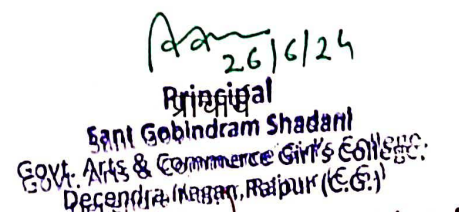 26/6/24
Principal
प्राचार्य
Sant Gobindram Shadani
Govt. Arts & Commerce Girl's College
Decendra Nagar, Raipur (C.G.)